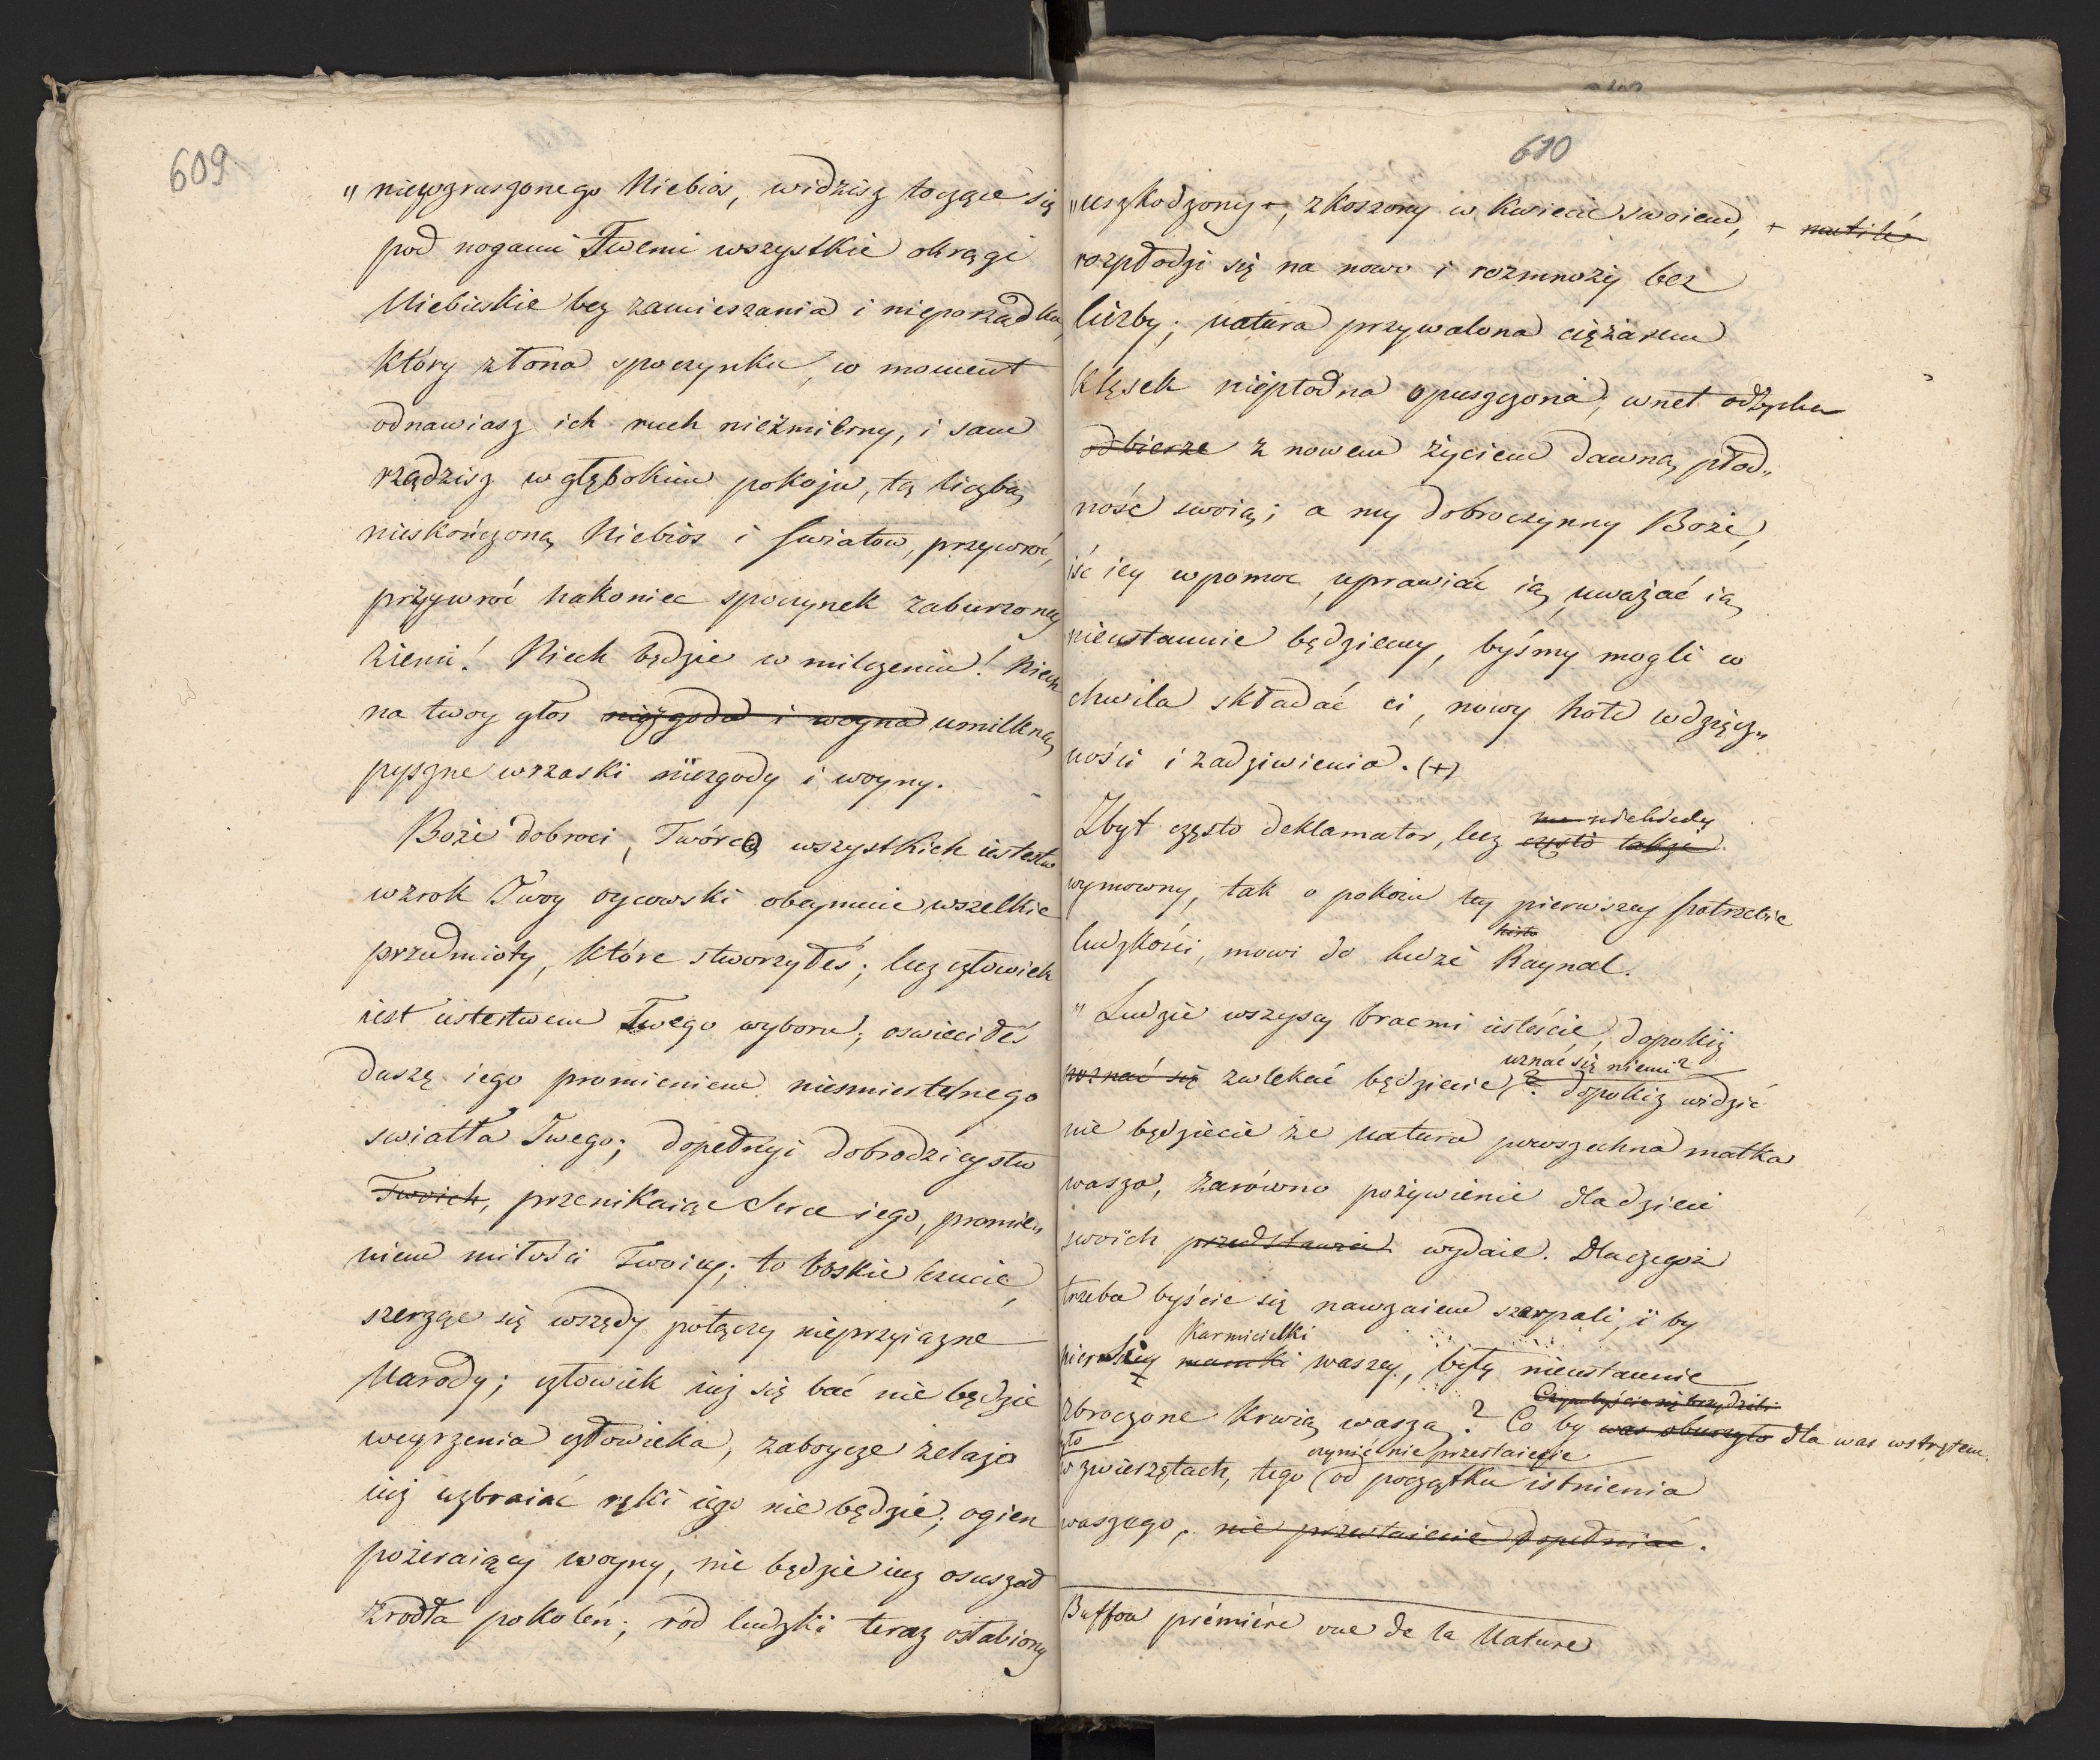 609
" niewzruszonego Niebios, widzisz toczące się
pod nogami Twemi wszystkie okręgi
Niebieskie bez zamieszania i nieporządku,
który z łona spoczynku, w moment
odnawiasz ich ruch niezmierny, i sam
rządzisz w głębokim pokoju, tą liczbą
nieskończoną Niebios i światow, przywroć,
przywroć nakoniec spoczynek zaburzoney
ziemi! Niech będzie w milczeniu! Niech
na twoy głos niezgoda i woyna umilkną
pyszne wrzaski niezgody i woyny.
Boże dobroci, Twórco wszystkich iestestw
wzrok Twoy oycowski obeymuie wszelkie
przedmioty, które stworzyłeś; lecz człowiek
iest iestestwem Twego wyboru; oswieciłeś
duszę iego promieniem niesmiertelnego
swiatła Twego; dopełnyi dobrodzieystw
Twoich, przenikaiąc Serce iego, promie„
niem miłości Twoiey; to boskie czucie,
szerząc się wszędy połączy nieprzyiazne
Narody; człowiek iuż się bać nie będzie
weyrzenia człowieka, zaboycze żelazo
iuż uzbraiać ręki iego nie będzie; ogien
pożeraiący woyny, nie będzie iuż osuszał
źrodła pokoleń; ród ludzki teraz osłabiony
610
"uszkodzony +, zkoszony w kwiecie swoiem, + mutilé
rozpłodzi się na nowo i rozmnoży bez
liczby; natura przywalona ciężarem
klęsek niepłodna opuszczona, wnet odzyska
odbierze z nowem życiem dawną płod„
ność swoią; a my dobroczynny Boże,
iść iey w pomoc, uprawiać ią, uważać ią
nieustannie będziemy, byśmy mogli co
chwila składać ci, nowy hołd wdzięcz„
ności i zadziwienia. (+)
niekiedy
Zbyt często deklamator, lecz często także
wymowny, tak o pokoiu tey pierwszey potrzebie
ludzkości, mowi do ludzi Raynal.
" Ludzie wszyscy bracmi iesteście, dopokiż
uznać się niemi?
poznać się zwlekać będziecie? dopokiż widzić
nie będziecie że natura powszechna matka
wasza, zarówno pożywienie dla dzieci
swoich przedstawia wydaie. Dlaczegoż
trzeba byście się nawzaiem szarpali, i by
Karmicielki
piersi mamki waszey, były nieustannie
Czym byście się brzydzili
zbroczone krwią waszą? Co by was oburzyło dla was wstrętem
było
czynić nie przestaiecie
w zwierzętach, tego (od początku istnienia
waszego, nie przestaiecie dopełniać.
Buffon prémiére vue de la Nature